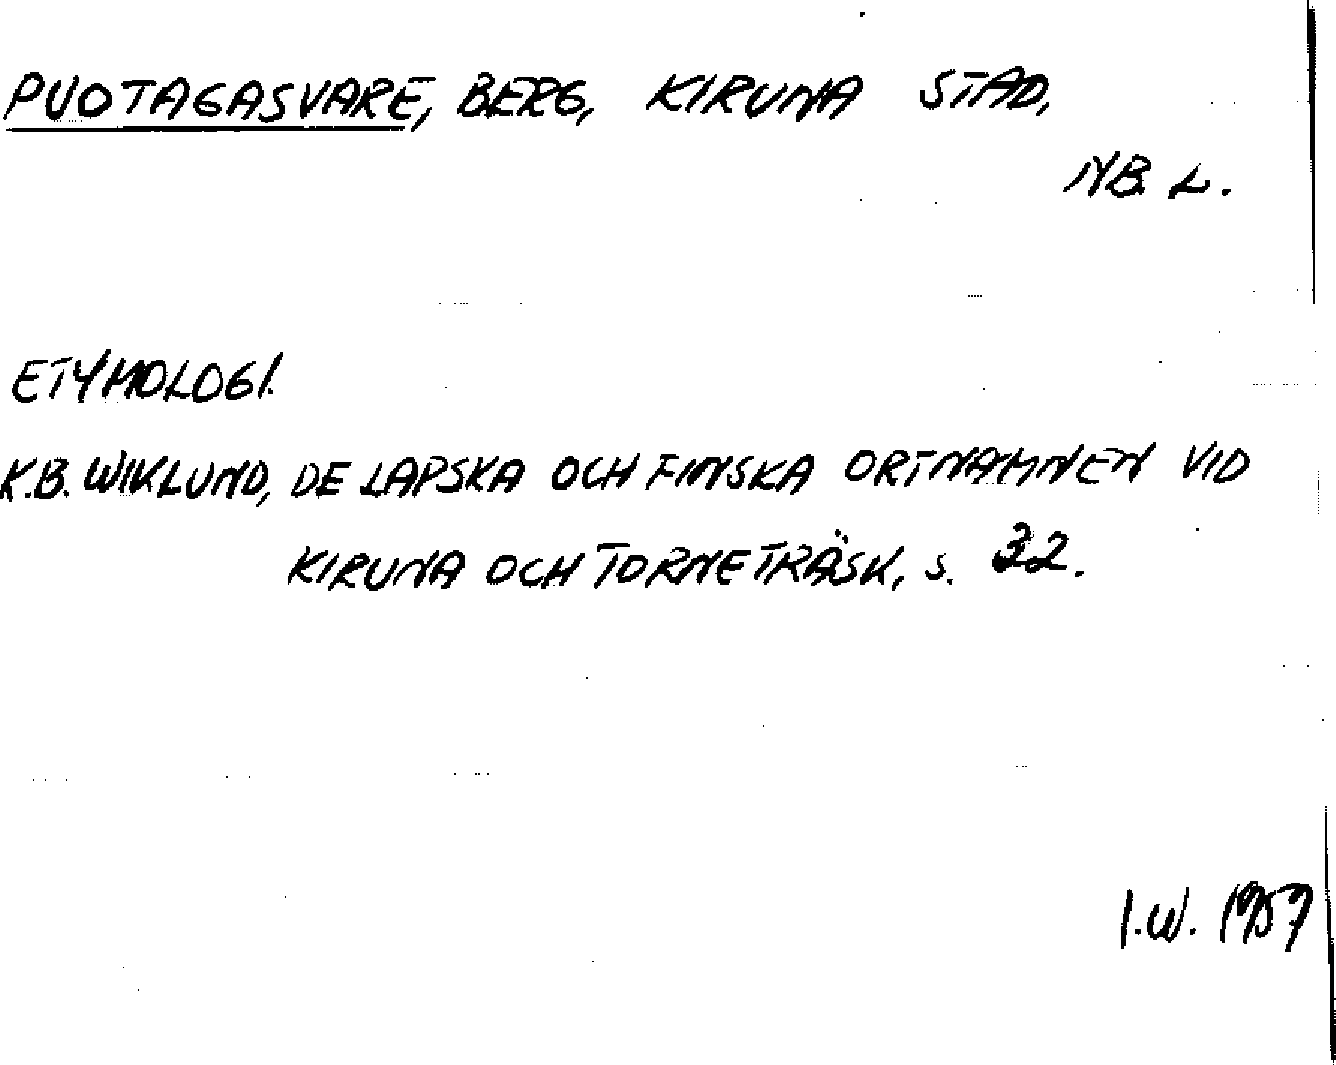 PUOTAGASVARE, BERG, KIRUNA STAD,
NB. L.
ETYMOLOGI.
K.B. WIKLUND, DE LAPSKA OCH FINSKA ORTNAMNEN VID
KIRUNA OCH TORNETRÄSK, s. 32.
I.W. 1959